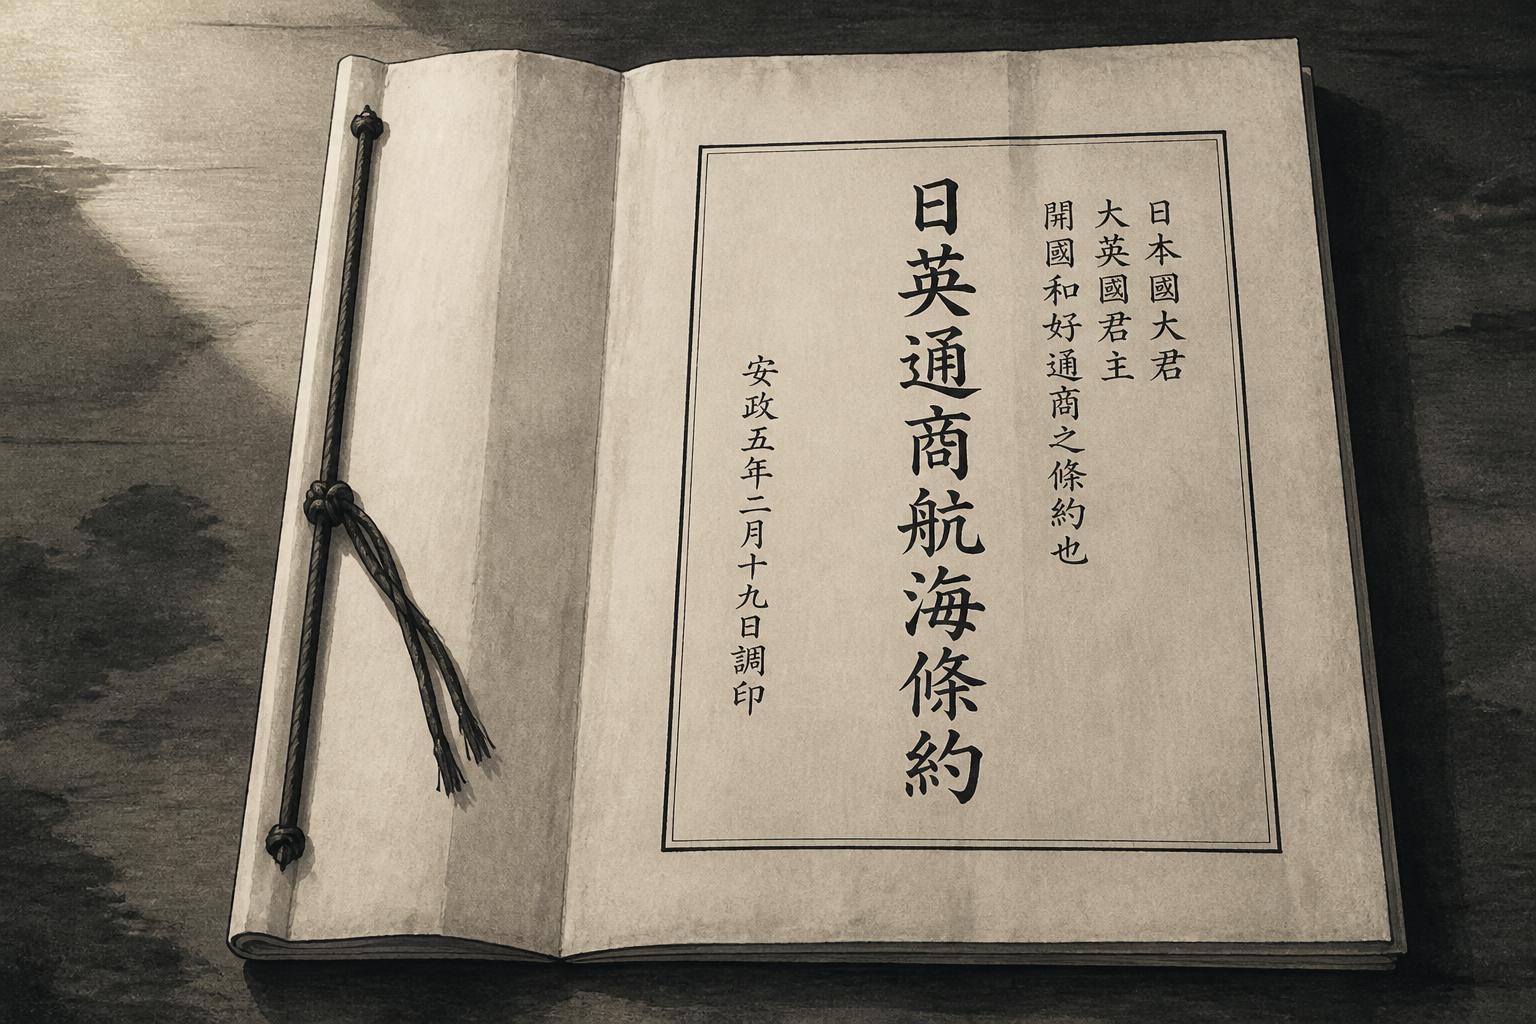 日本國大君
大英國君主
開國和好通商之條約也
日英通商航海條約
安政五年二月十九日調印